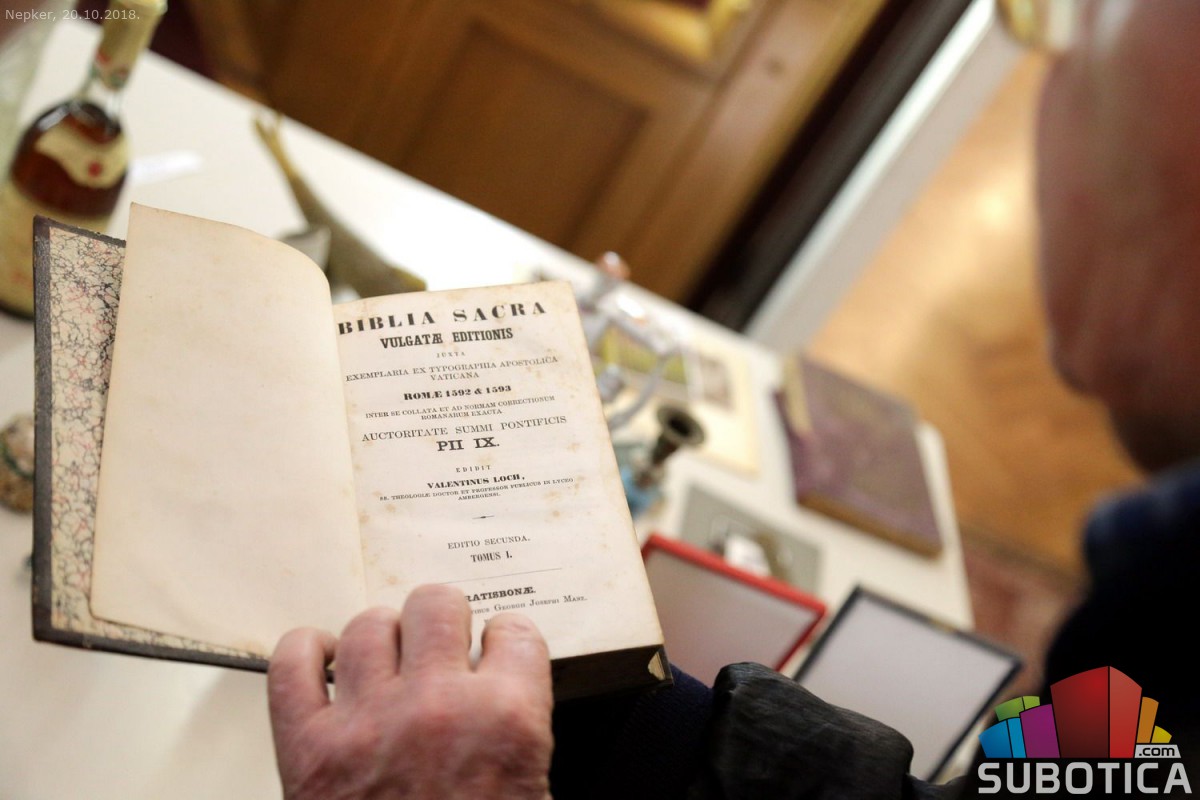 Nepker, 20.10.2018.
BIBLIA SACRA
VULGATÆ EDITIONIS
JUXTA
EXEMPLARIA EX TYPOGRAPHIA APOSTOLICA
VATICANA
ROMÆ 1592 & 1593
INTER SE COLLATA ET AD NORMAM CORRECTIONUM
ROMANARUM EXACTA
AUCTORITATE SUMMI PONTIFICIS
PII IX.
EDIDIT
VALENTINUS LOCH,
SS. THEOLOGIÆ DOCTOR ET PROFESSOR PUBLICUS IN LYCEO
AMBERGENSI.
EDITIO SECUNDA.
TOMUS I.
RATISBONÆ.
GEORGII JOSEPHI MANZ.
.com
SUBOTICA